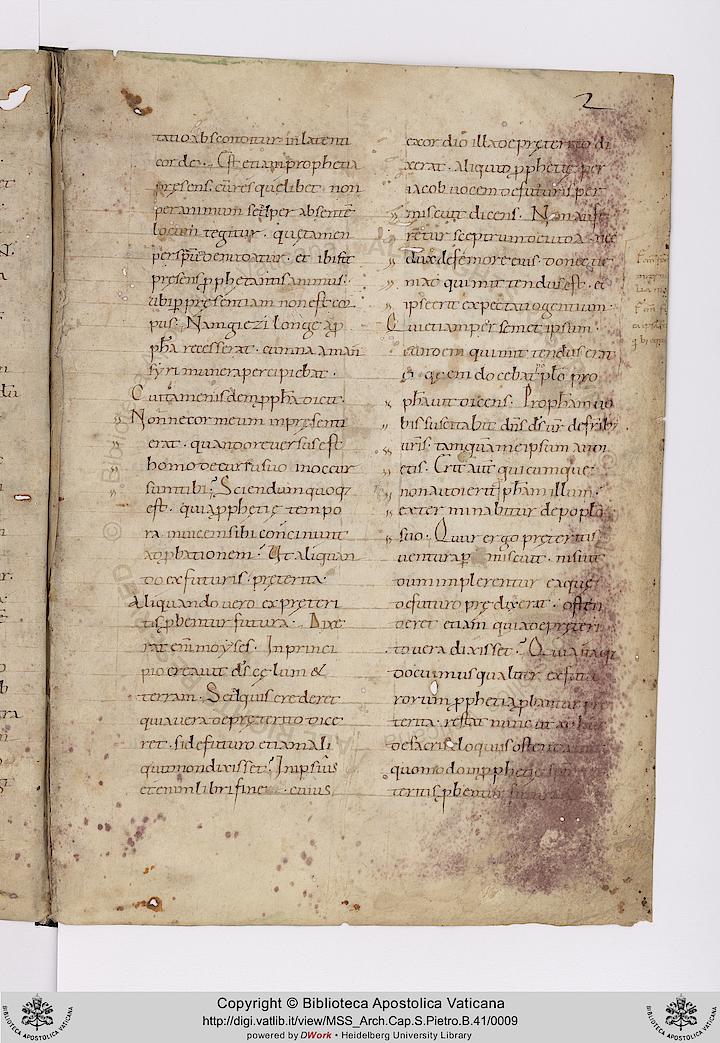 2
tatio absconditur in latenti
corde. Est etiam prophetia
presens. cū res quelibet non
per animum sed per absente
locum tegitur. que tamen
per spm̄ denudatur. et ibi fit
presens p̱phetantis animus.
ubi per presentiam non est cor
pus. Nam giezi longe a p̱
pha recesserat. cum naaman
syri munera percipiebat.
Cui tamen isdem pph̄a dicit.
Nonne cor meum in presenti
erat. quando reversus est
homo de curru suo in occur
sum tibi; Sciendum quoq;
est. quia p̱phetie tempo
ra invicem sibi concinunt
ad p̱bationem. Ut aliquan
do ex futuris. preterita.
Aliquando vero ex preteri
tis p̱bentur futura. Dixe
rat enim moyses. In princi
pio creavit d̄s cęlum &
terram. Sed quis crederet
quia vera de preterito dice
ret. si de futuro etiam ali
quid non dixisset; In ipsius
etenim libri fine. cuius
exordio illa de preterito di
xerat. aliquid p̱phetię per
iacob vocem de futuris per
miscuit dicens. Non aufe
retur sceptrum de iuda. nec
dux de femore eius. donec ve
niat qui mittendus est. et
ipse erit expectatio gentium.
Qui etiam per semet ipsum.
eundem qui mittendus erat
quem docebat pplō pro
phavit dicens. Propham vo
bis suscitabit dn̄s d̄s vr̄. de frib;
vr̄is. tamquam me ipsum audi
etis. Erit aut̄ quicumque
non audierit ph̄am illum.
exterminabitur de populo
suo. Quur ergo preteritis
ventura permiscuit. nisi ut
dum implerentur ea que
de futuro prędixerat. osten
deret etiam quia de preteri
to vera dixisset; Quia itaq;
docuimus qualiter ex futu
rorum p̱phetia p̱bantur pre
terita. restat nunc ut
de sacris eloquiis ostendamus
quomodo in p̱phetię
teritis p̱bentur futura
Copyright © Biblioteca Apostolica Vaticana
http://digi.vatlib.it/view/MSS_Arch.Cap.S.Pietro.B.41/0009
powered by DWork • Heidelberg University Library
BIBLIOTECA APOSTOLICA VATICANA
BIBLIOTECA APOSTOLICA VATICANA